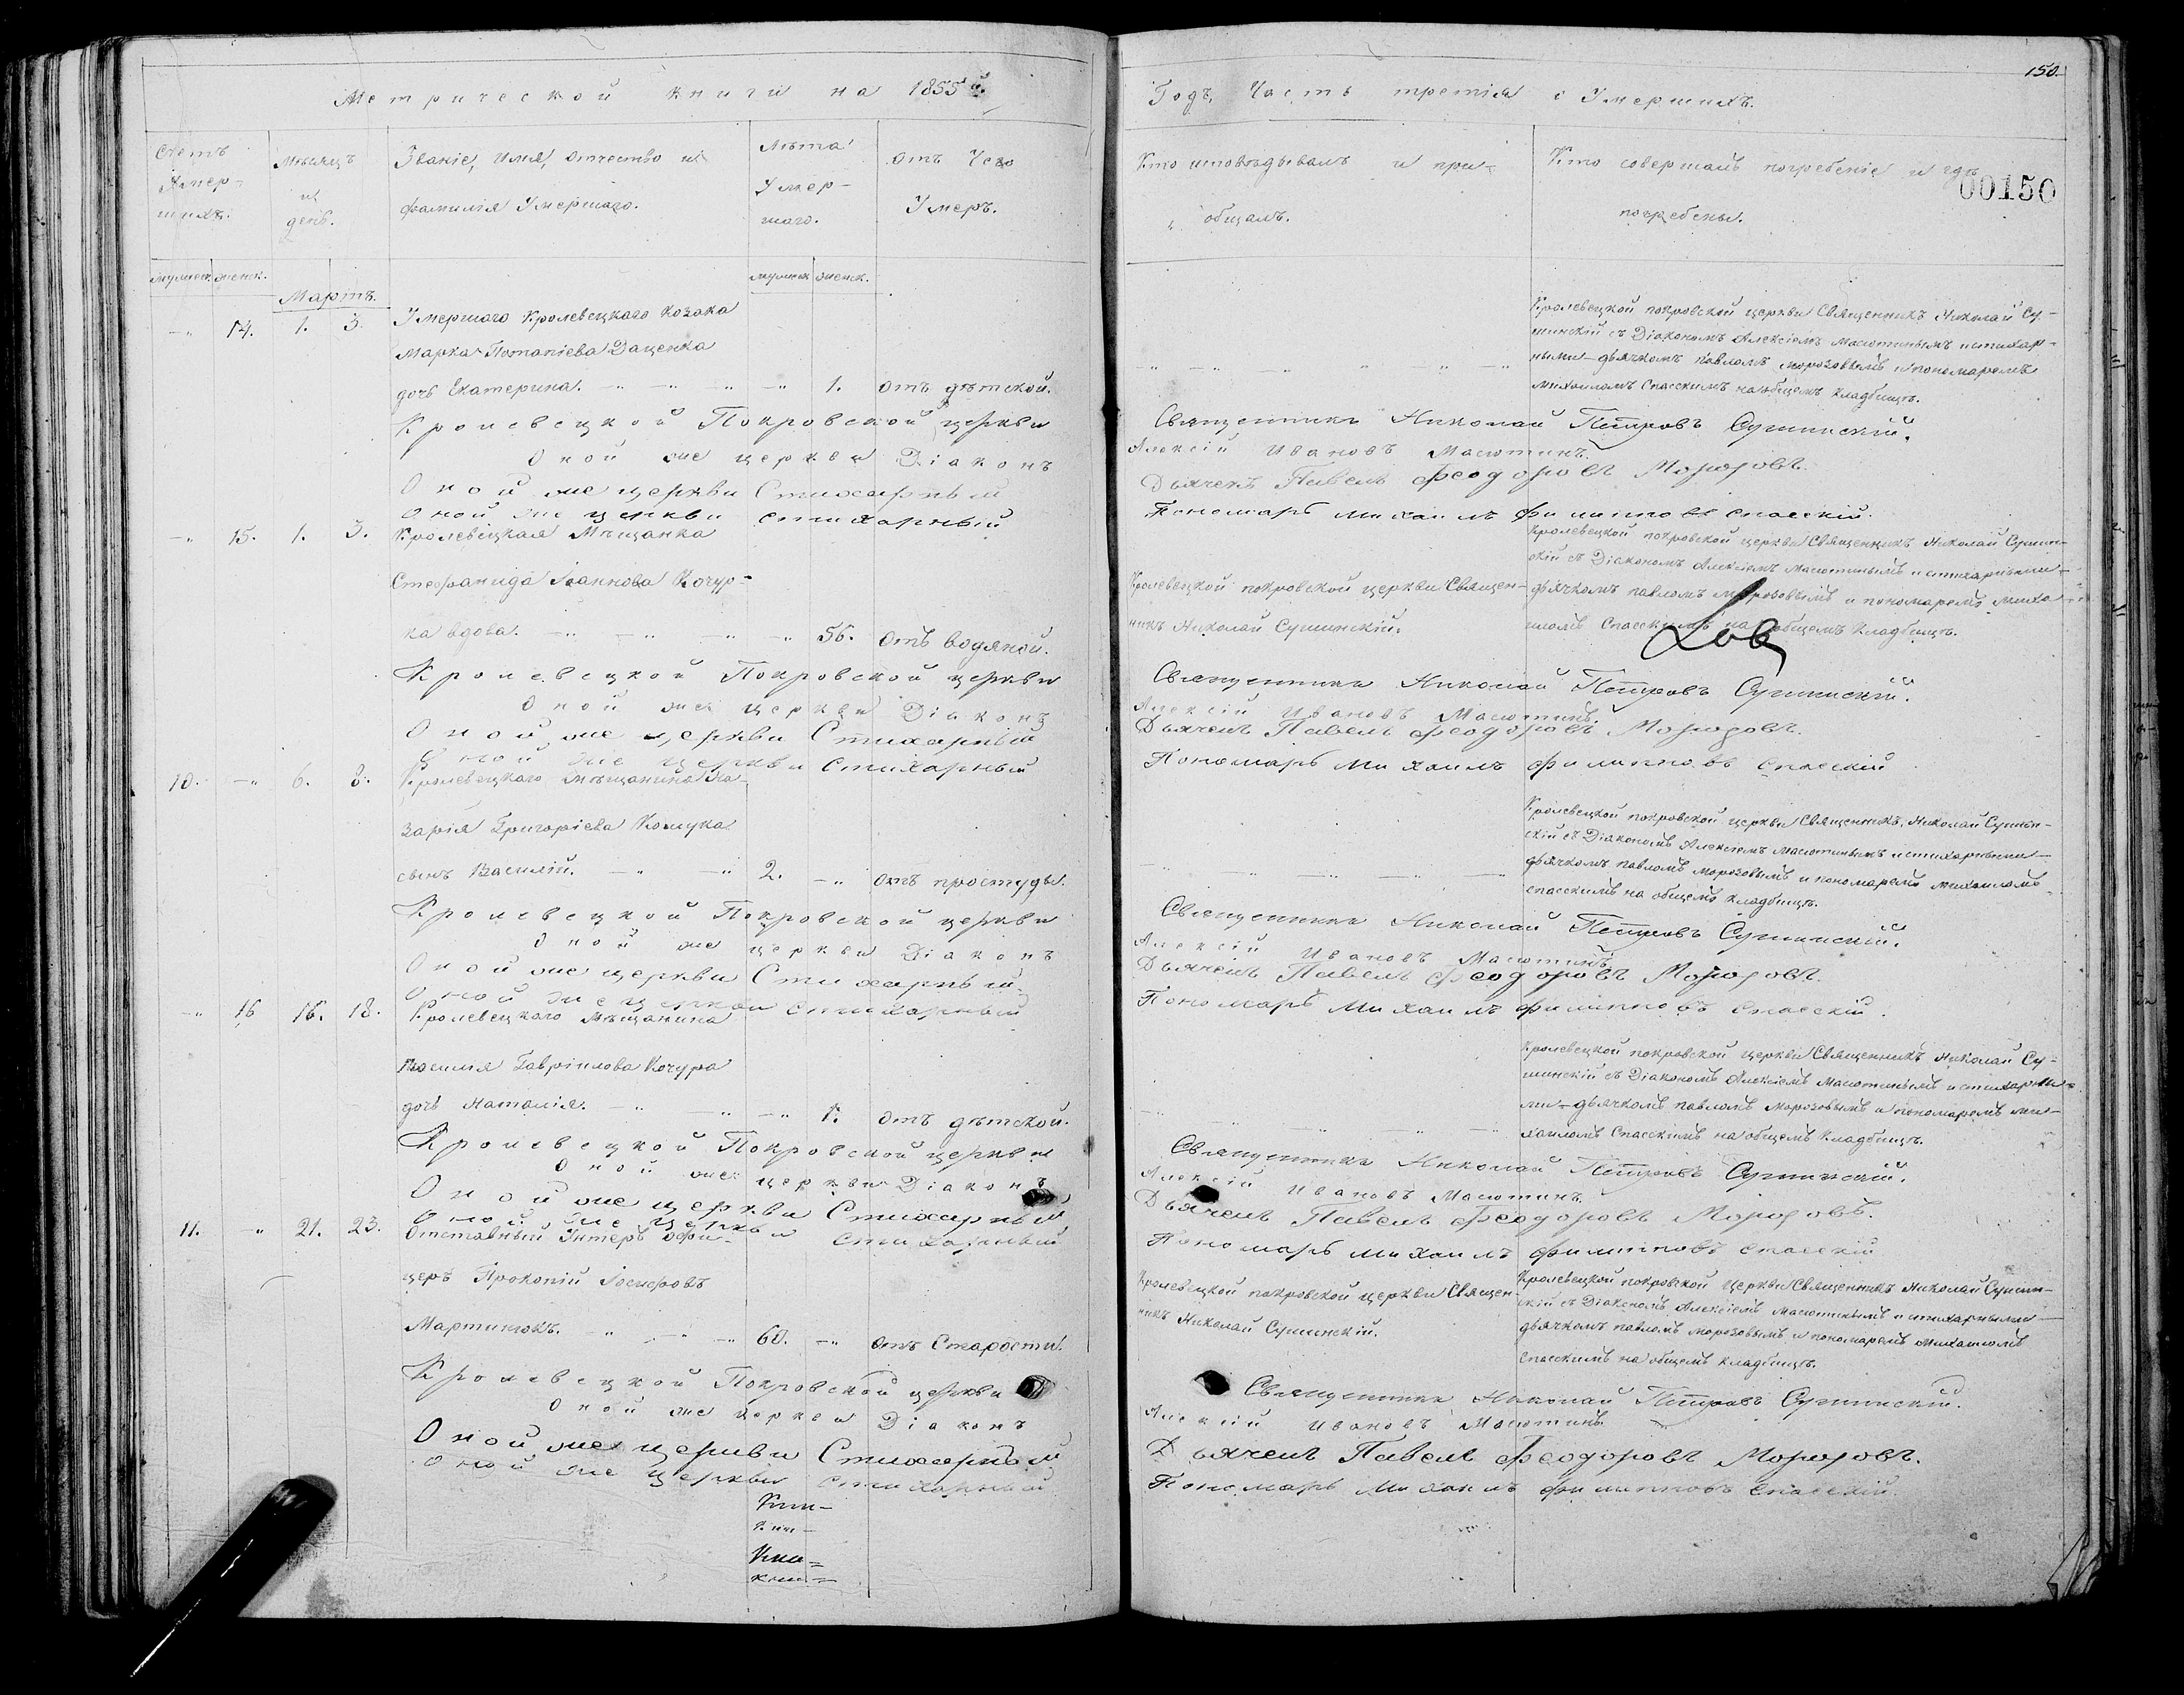 Метрической книги на 1855й.
Счетъ Умер-
шихъ.
Мѣсяцъ
и
день.
Званіе, имя, отчество и
фамилія Умершаго.
Лѣта
Умер-
шаго.
отъ Чего
Умеръ.
мужеск. женск.
Мартъ.
мужеск женск.
14. 1. 3. Умершаго Кролевецкаго козака
Марка Потапіева Даценка
дочь Екатерина. 1. отъ дѣтской.
Кролевецкой Покровской церкви
Оной же церкви Діаконъ
Оной же церкви Стихарный
Оной же церкви стихарный
15. 1. 3. Кролевецкая Мѣщанка
Стефанида Іоаннова Кочур-
ка вдова. 56. отъ водяной.
Кролевецкой Покровской церкви
Оной же церкви Діаконъ
Оной же церкви Стихарный
Оной же церкви стихарный
10. 6. 8. Кролевецкаго мѣщанина На-
зарія Григоріева
сынъ Василій. 2. отъ простуды.
Кролевецкой Покровской церкви
Оной же церкви Діаконъ
Оной же церкви Стихарный
Оной же церкви стихарный
16 16. 18. Кролевецкаго мѣщанина
Василія Гавріилова Кочура
дочь Наталія. 1. отъ дѣтской.
Кролевецкой Покровской церкви
Оной же церкви Діаконъ
Оной же церкви Стихарный
Оной же церкви стихарный
11. 21. 23. Отставный Унтеръ офи-
церъ Прокопій Іосифовъ
Мартинюкъ. 60. отъ Старости.
Кролевецкой Покровской церкви
Оной же церкви Діаконъ
Оной же церкви Стихарный
Оной же церкви стихарный
Кни-
Кни-
Кни-
кни-
150.
Годъ, Часть третія о Умершихъ.
Кто исповѣдывалъ и при-
общалъ.
Кто совершалъ погребеніе и гдѣ
погребены.
00150
Кролевецкой покровской церкви Священникъ Николай Су-
шинскій съ Діакономъ Алексіемъ Масютинымъ и стихар-
ными дьячкомъ павломъ морозовымъ и пономаремъ
михаиломъ Спасскимъ на общемъ кладбищѣ.
Священникъ Николай Петровъ Сушинскій.
Алексій Ивановъ Масютинъ.
Дьячекъ Павелъ Феодоровъ Морозовъ.
Пономарь Михаилъ филипповъ спасскій.
Кролевецкой покровской церкви Священникъ Николай Сушин-
скій съ Діакономъ Алексіемъ масютинымъ и стихарными
дьячкомъ павломъ морозовымъ и пономаремъ миха
иломъ Спасскимъ на общемъ кладбищѣ.
Кролевецкой покровской церкви Священ-
никъ Николай Сушинскій.
Священникъ Николай Петровъ Сушинскій.
Алексій Ивановъ Масютинъ.
Дьячекъ Павелъ Феодоровъ Морозовъ.
Пономарь Михаилъ филипповъ спасскій
Кролевецкой покровской церкви Священникъ Николай Сушин-
скій съ Діакономъ Алексіемъ масютинымъ и стихарными
дьячкомъ павломъ морозовымъ и пономаремъ михаиломъ
спасскимъ на общемъ кладбищѣ.
Священникъ Николай Петровъ Сушинскій.
Алексій Ивановъ Масютинъ
Дьячекъ Павелъ Феодоровъ Морозовъ.
Пономарь Михаилъ филипповъ спасскій.
Кролевецкой покровской церкви Священникъ Николай Су-
шинскій съ Діакономъ Алексіемъ Масютинымъ и стихарны-
ми дьячкомъ павломъ морозовымъ и пономаремъ ми-
хаиломъ Спасскимъ на общемъ кладбищѣ.
Священникъ Николай Петровъ Сушинскій.
Алексій Ивановъ Масютинъ.
Дьячекъ Павелъ Феодоровъ Морозовъ.
Пономарь Михаилъ филипповъ спасскій
Кролевецкой покровской церкви Священ-
никъ Николай Сушинскій.
Кролевецкой покровской церкви Священникъ Николай Сушин-
скій съ Діакономъ Алексіемъ масютинымъ и стихарными
дьячкомъ павломъ морозовымъ и пономаремъ михаиломъ
спасскимъ на общемъ кладбищѣ.
Священникъ Николай Петровъ Сушинскій.
Алексій Ивановъ Масютинъ.
Дьячекъ Павелъ Феодоровъ Морозовъ.
Пономарь Михаилъ филипповъ спасскій.